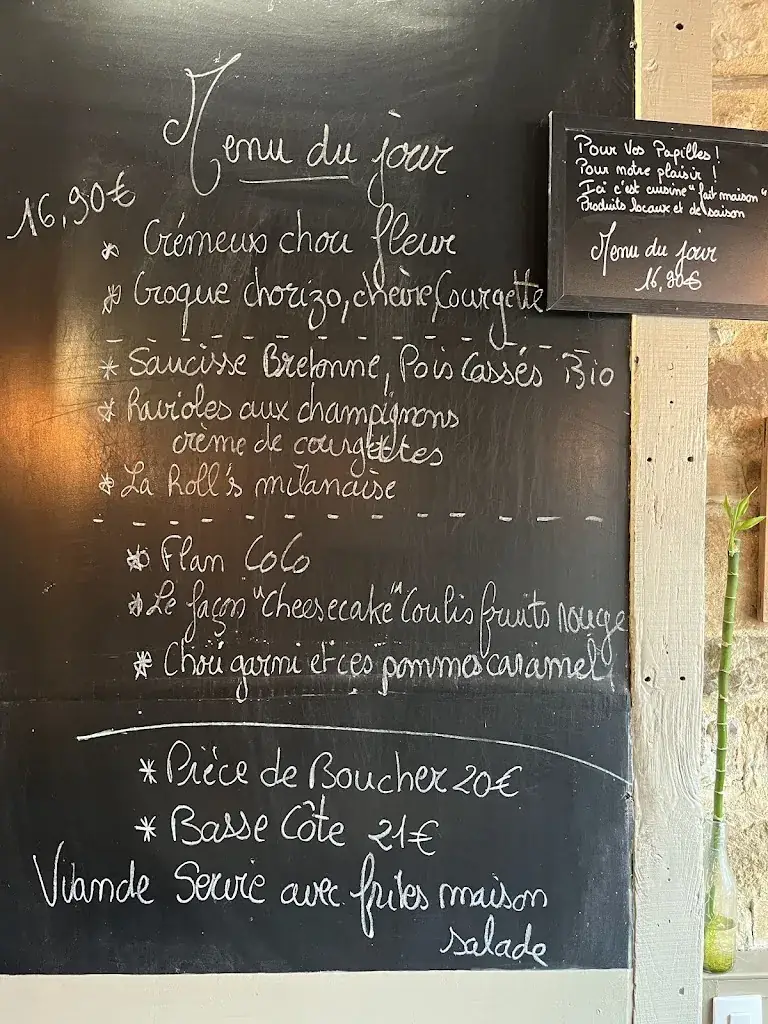 Menu du jour
16,90€
* Crémeux chou fleur
* Croque chorizo, chèvre, Courgette
* Saucisse Bretonne, Pois Cassés Bio
* Ravioles aux champignons
crème de courgettes
* La Roll's milanaise
* Flan CoCo
* Le façon "Cheesecake" Coulis fruits rouge
* Chou garni et ces pommes caramel
* Pièce de Boucher 20€
* Basse Côte 21€
Viande Servie avec frites maison
salade
Pour Vos Papilles !
Pour notre plaisir !
Ici c'est cuisine "fait maison"
Produits locaux et de saison
Menu du jour
16,90€